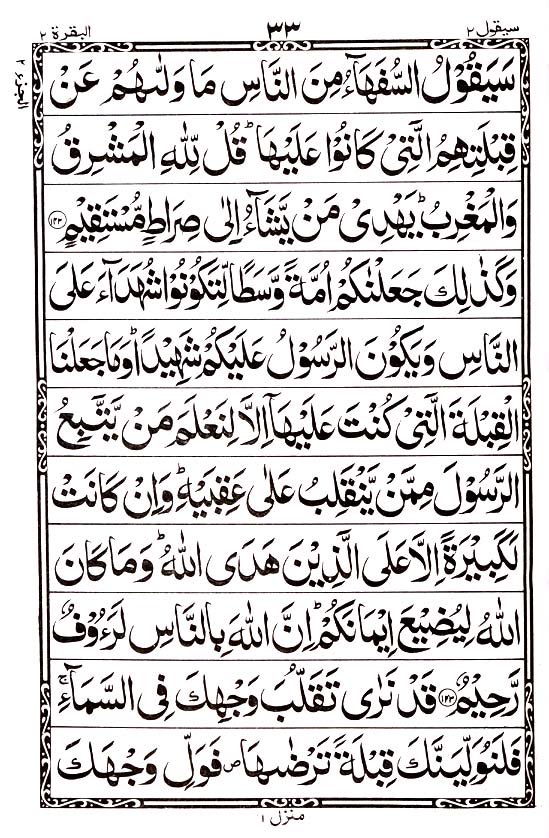 سيقول ٢ ٣٣ البقرة ٢
الجزء ٢
سَيَقُوۡلُ السُّفَهَآءُ مِنَ النَّاسِ مَا وَلّٰٮهُمۡ عَنۡ
قِبۡلَتِهِمُ الَّتِىۡ كَانُوۡا عَلَيۡهَا ؕ قُلۡ لِّلّٰهِ الۡمَشۡرِقُ
وَالۡمَغۡرِبُ ؕ يَهۡدِىۡ مَنۡ يَّشَآءُ اِلٰى صِرَاطٍ مُّسۡتَقِيۡمٍ ﴿۱۴۲﴾
وَكَذٰلِكَ جَعَلۡنٰكُمۡ اُمَّةً وَّسَطًا لِّتَکُوۡنُوۡا شُهَدَآءَ عَلَى
النَّاسِ وَيَكُوۡنَ الرَّسُوۡلُ عَلَيۡكُمۡ شَهِيۡدًا ؕ وَمَا جَعَلۡنَا
الۡقِبۡلَةَ الَّتِىۡ كُنۡتَ عَلَيۡهَآ اِلَّا لِنَعۡلَمَ مَنۡ يَّتَّبِعُ
الرَّسُوۡلَ مِمَّنۡ يَّنۡقَلِبُ عَلٰى عَقِبَيۡهِ ؕ وَاِنۡ كَانَتۡ
لَكَبِيۡرَةً اِلَّا عَلَى الَّذِيۡنَ هَدَى اللّٰهُ ؕ وَمَا كَانَ
اللّٰهُ لِيُضِيْعَ اِيۡمَانَكُمۡ ؕ اِنَّ اللّٰهَ بِالنَّاسِ لَرَءُوۡفٌ
رَّحِيۡمٌ ﴿۱۴۳﴾ قَدۡ نَرٰى تَقَلُّبَ وَجۡهِكَ فِى السَّمَآءِ ۚ
فَلَـنُوَلِّيَنَّكَ قِبۡلَةً تَرۡضٰٮهَا ص فَوَلِّ وَجۡهَكَ
منزل ١